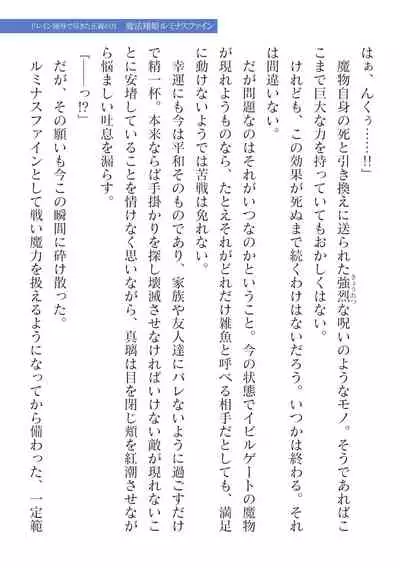 ドレイン気触手で尽きた正義の力　魔法翔姫ルミナスファイン
はぁ、んくぅ……!!」
　魔物自身の死と引き換えに送られた強烈な呪いのようなモノ。そうであればこ
きょうれつ
こまで巨大な力を持っていてもおかしくはない。
　けれども、この効果が死ぬまで続くわけはないだろう。いつかは終わる。それ
は間違いない。
　だが問題なのはそれがいつなのかということ。今の状態でイビルゲートの魔物
が現れようものなら、たとえそれがどれだけ雑魚と呼べる相手だとしても、満足
に動けないようでは苦戦は免れない。
　幸運にも今は平和そのものであり、家族や友人達にバレないように過ごすだけ
で精一杯。本来ならば手掛かりを探し壊滅させなければいけない敵が現れないこ
とに安堵していることを情けなく思いながら、真璃は目を閉じ頬を紅潮させなが
ら悩ましい吐息を漏らす。
「――っ!?」
　だが、その願いも今この瞬間に砕け散った。
　ルミナスファインとして戦い魔力を扱えるようになってから備わった、一定範